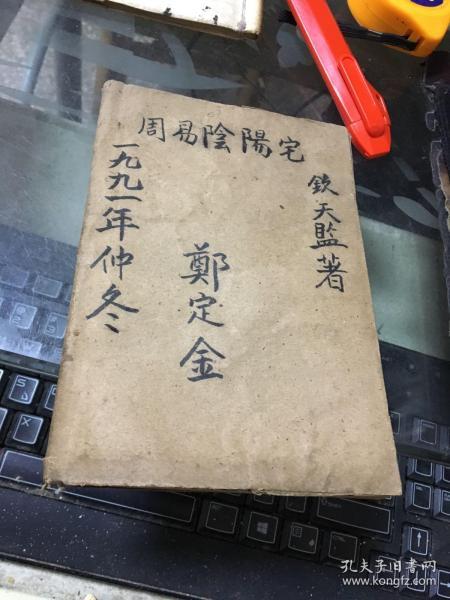 周易陰陽宅
欽天監著
鄭定金
一九九一年仲冬
孔夫子旧书网
www.kongfz.com